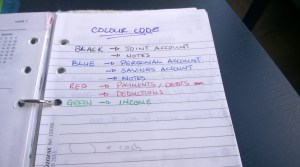 COLOUR CODE
BLACK → JOINT ACCOUNT
→ NOTES
BLUE → PERSONAL ACCOUNT
→ SAVINGS ACCOUNT
→ NOTES
RED → PAYMENTS / DEBTS
→ DEDUCTIONS
GREEN → INCOME
( ) = cash